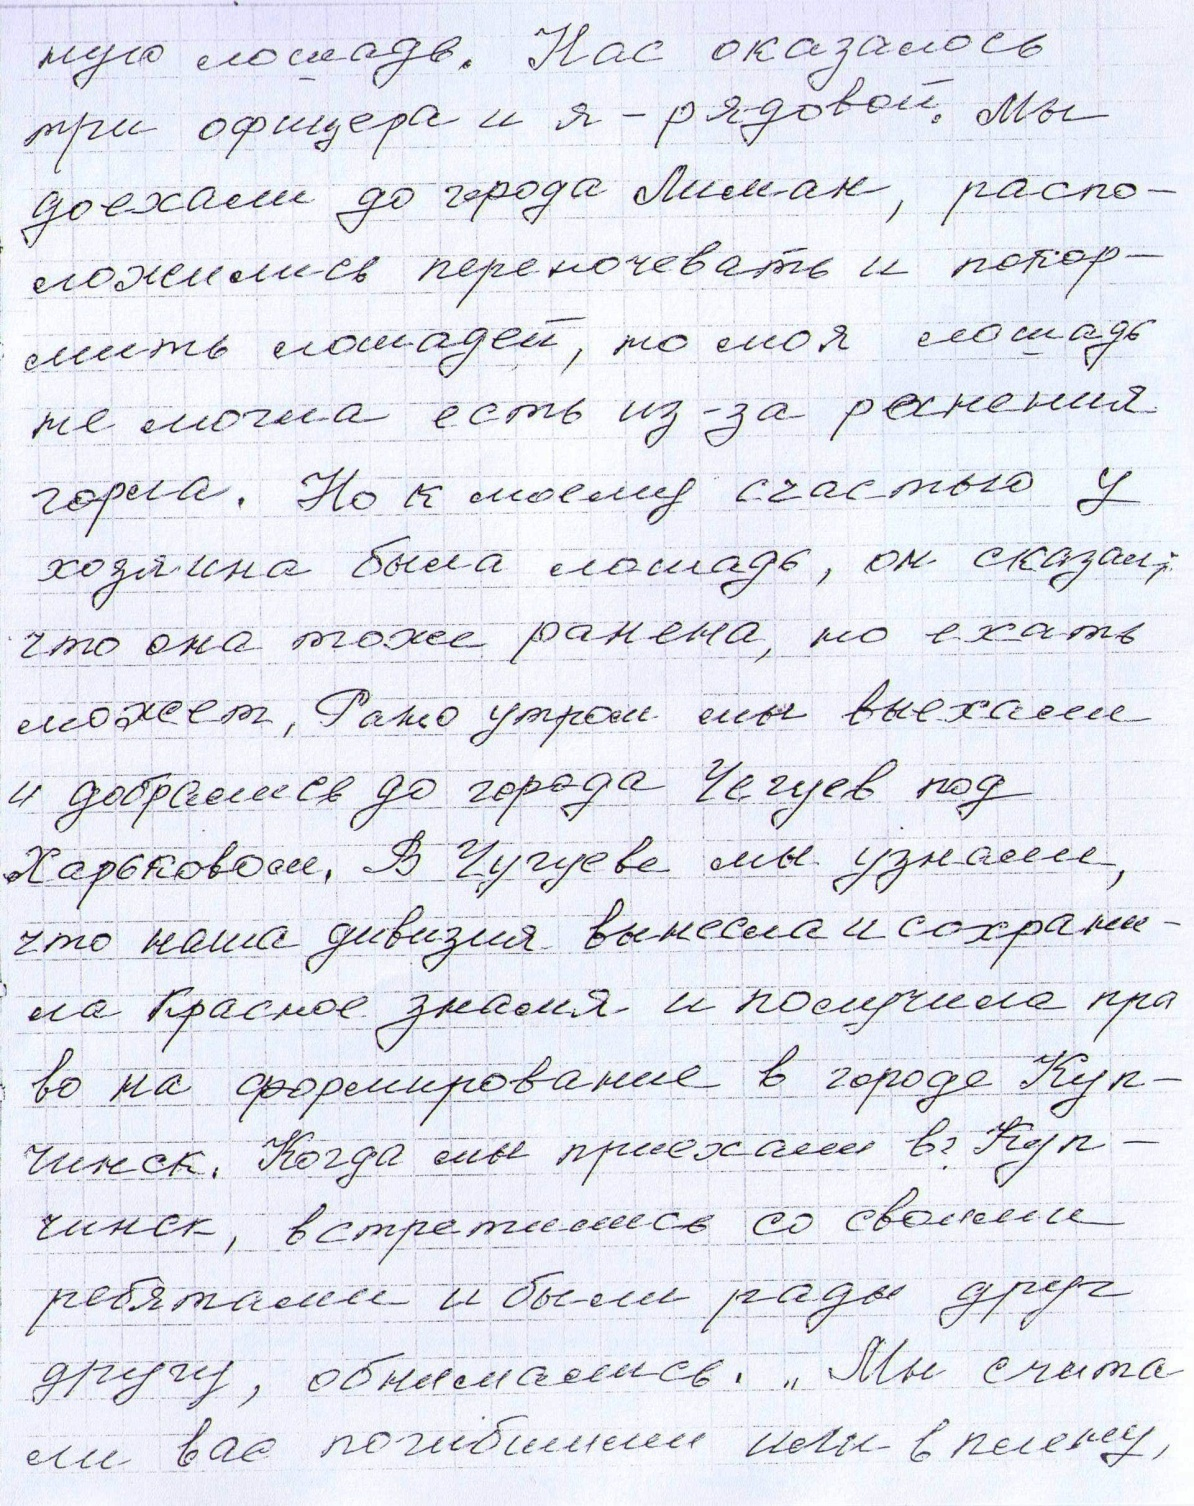 ную лошадь. Нас оказалось
три офицера и я - рядовой. Мы
доехали до города Лиман, распо-
ложились переночевать и покор-
мить лошадей, но моя лошадь
не могла есть из-за ранения
горла. Но к моему счастью у
хозяина была лошадь, он сказал,
что она тоже ранена, но ехать
может. Рано утром мы выехали
и добрались до города Чегуев под
Харьковом. В Чугуеве мы узнали,
что наша дивизия вынесла и сохрани-
ла Красное знамя и получила пра
во на формирование в городе Куп-
чинск. Когда мы приехали в г. Куп-
чинск, встретились со своими
ребятами и были рады друг
другу, обнимались. „Мы счита
ли вас погибшими или в плену,